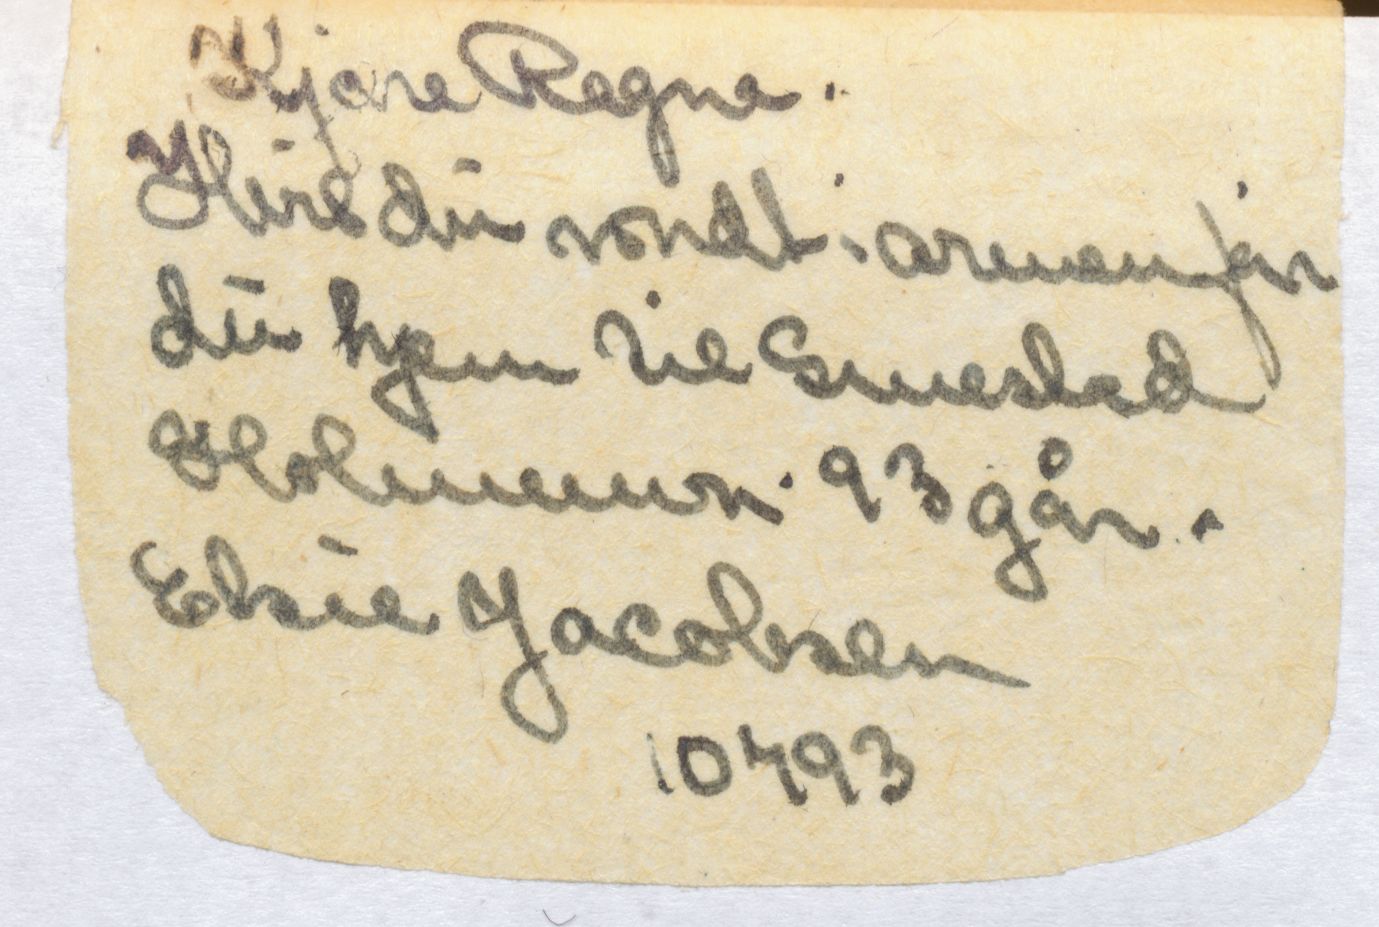 Kjære Ragna.
Hvis du vondt i armen får
du hjem til Smestad
Holmenvn. 93 går.
Elsie Jacobsen
10793